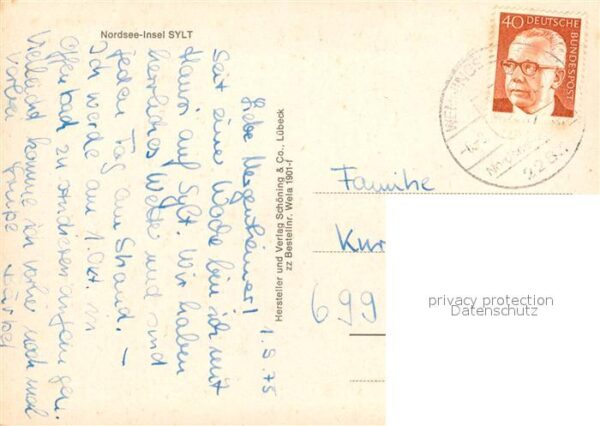 Nordsee-Insel SYLT
1.9.75
Liebe Mergentheimer!
Seit einer Woche bin ich mit
Hansi auf Sylt. Wir haben
herrliches Wetter und sind
jeden Tag am Strand. –
Ich werde am 1. Okt. in
Offenbach zu studieren anfangen.
Vielleicht komme ich vorher noch mal
vorbei. Grüße
Hersteller und Verlag Schöning & Co., Lübeck
zz Bestellnr. Wela 1901-f
40 DEUTSCHE BUNDESPOST
Familie
Kur
699
privacy protection
Datenschutz